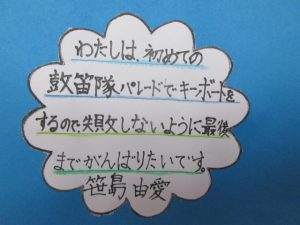 わたしは、初めての
鼓笛隊パレードでキーボードを
するので、失敗しないように最後
までがんばりたいです。
笹島 由愛